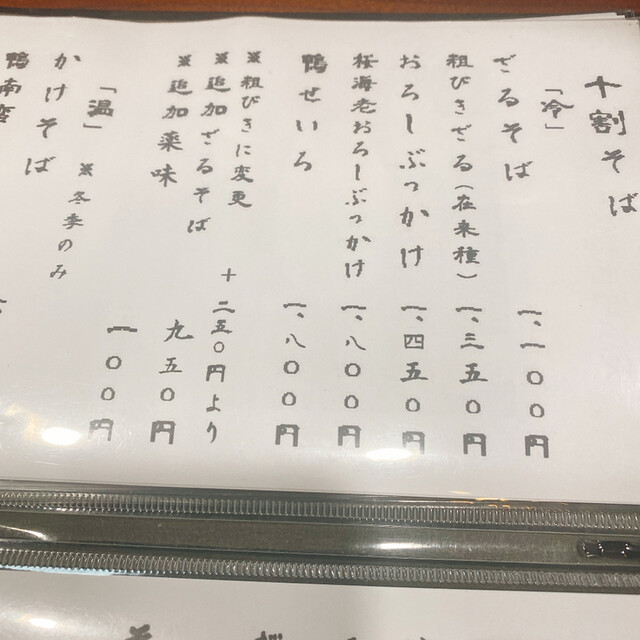 十割そば
「冷」
ざるそば 一、一〇〇円
粗びきざる(在来種) 一、三五〇円
おろしぶっかけ 一、四五〇円
桜海老おろしぶっかけ 一、八〇〇円
鴨せいろ 一、八〇〇円
※粗びきに変更 +二五〇円より
※追加ざるそば 九五〇円
※追加薬味 一〇〇円
「温」 ※冬季のみ
かけそば
鴨南蛮